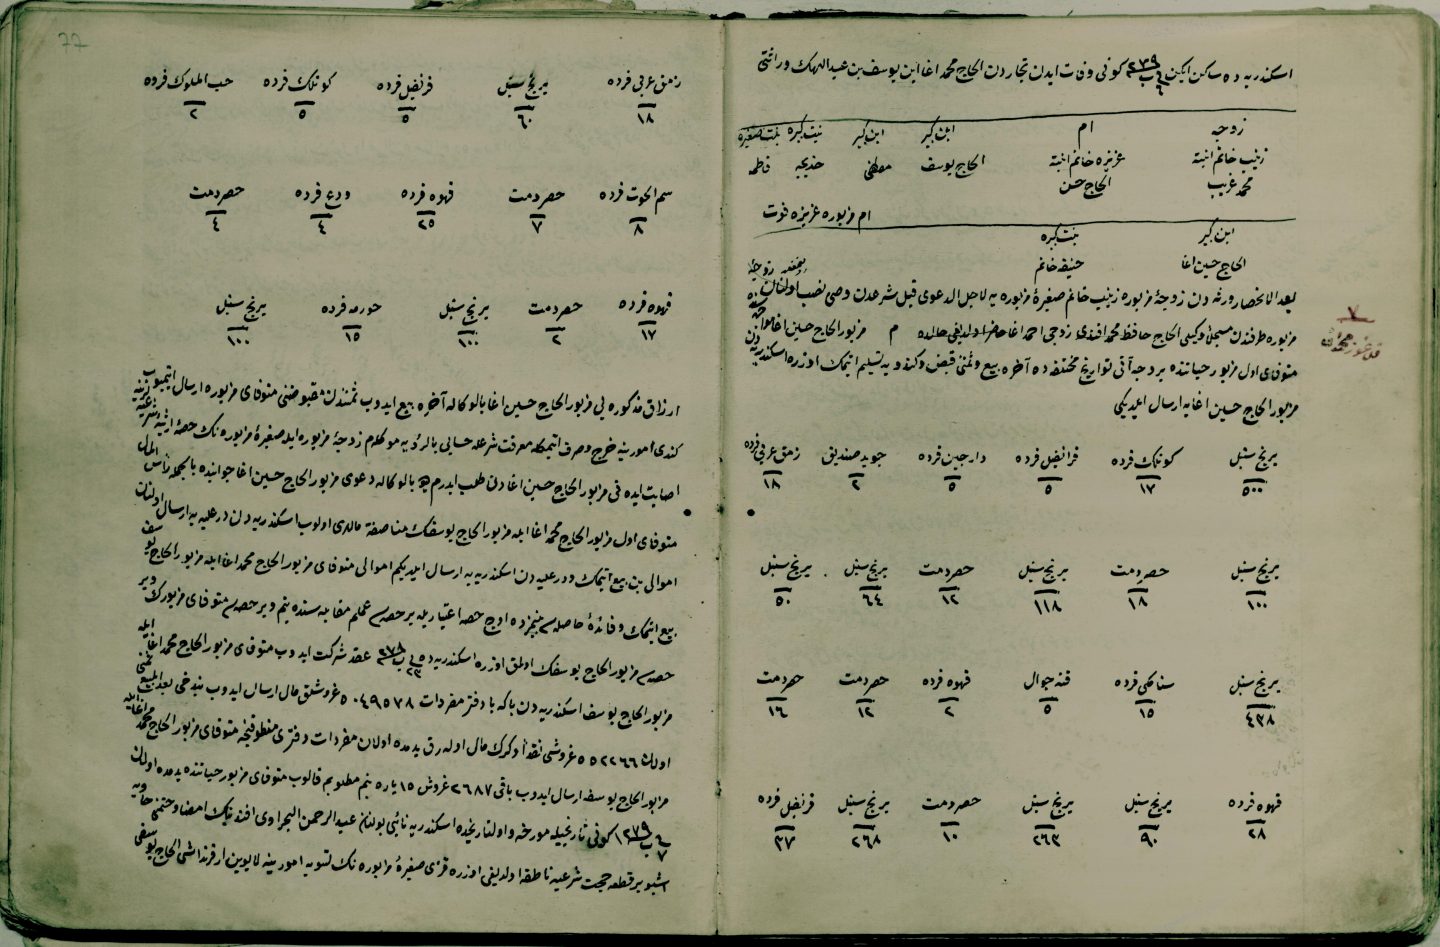 اسكندريه ده ساكن ايكن ٢٣٩ كونى وفات ايدن تجاردن الحاج محمد اغا ابن يوسف بن عبد الله ك وراثتى
زوجه ام ابن كبير ابن كبير بنت كبيره بنت صغيره
زينب خانم ابنة عزيزه خانم ابنة الحاج يوسف مصطفى خديجه فاطمه
محمد غريب الحاج حسن
ام مزبوره عزيزه فوت
ابن كبير بنت كبيره
الحاج حسين اغا حنيفه خانم
بعد الانحصار ورثه دن زوجۀ مزبوره زينب خانم صغيرۀ مزبوره يه لاجل الدعوى قبل شرعدن وصى نصب اولنان
مزبوره طرفندن مسجل وكيلى الحاج حافظ محمد افندى زوجى احمد اغا حاضر اولديغى حالده م مزبور الحاج حسين اغا
متوفاى اول مزبور حياتنده بر وجه آتى تواريخ مختلفه ده آخره بيع وثمنى قبض وكندويه تسليم ايتمك اوزره اسكندريه دن
مزبور الحاج حسين اغايه ارسال ايلديكى
برنج سنبل كوتلك فرده قرانفيل فرده دارجين فرده جويد صنديق زمق عربى فرده
٥٠٠ ١٧ ٥ ٥ ٢ ١٨
برنج سنبل حصر دمت برنج سنبل حصر دمت برنج سنبل برنج سنبل
١٠٠ ١٨ ١١٨ ١٢ ٦٤ ٥٠
برنج سنبل سنامكى فرده قنه جوال قهوه فرده حصر دمت حصر دمت
٤٣٨ ١٥ ٥ ٢ ١٢ ١٦
قهوه فرده برنج سنبل برنج سنبل حصر دمت برنج سنبل قرنفيل فرده
٢٨ ٩٠ ٢٦٢ ١٠ ٢٦٨ ٣٧
٧
٧٧
زمق عربى فرده برنج سنبل قرنفيل فرده كوتلك فرده حب الملوك فرده
١٨ ٦٠ ٥ ٥ ٢
سم الحوت فرده حصر دمت قهوه فرده ودع فرده حصر دمت
٨ ٧ ٢٥ ٤ ٤
قهوه فرده حصر دمت برنج سنبل فرده برنج سنبل
١٧ ٢ ١٠٠ ١٥ ١٠٠
ارزاق مذكوره يى مزبور الحاج حسين اغا بالوكاله آخره بيع ايدوب ثمنندن مقبوضنى متوفاى مزبوره ارسال ايتميوب
كندى امورينه خرج وصرف ايتمكله معرفت شرعله حسابى بالرؤيه موكلم زوجۀ مزبوره ايله صغيرۀ مزبوره نك حصۀ
اصابت ايده نى مزبور الحاج حسين اغادن طلب ايدرم ديو بالوكاله دعوى مزبور الحاج حسين اغا جوابنده بالجمله رأس المال
متوفاى اول مزبور الحاج محمد اغا ايله مزبور الحاج يوسفك مناصفة مالدى اولوب اسكندريه دن در عليه يه ارسال اولنان
اموالى بن بيع ايتمك ودر عليه دن اسكندريه يه ارسال ايلديكم اموالى متوفاى مزبور الحاج محمد اغا ايله مزبور الحاج يوسف
بيع ايتمك وفائدۀ حاصله سى بينمزده اوج حصه اعتباريله بر حصه سى عملم مقابله سنده بنم وبر حصه سى متوفاى مزبورك وبر
حصه سى مزبور الحاج يوسفك اولمق اوزره اسكندريه ده عقد شركت ايدوب متوفاى مزبور الحاج محمد اغا ايله
مزبور الحاج يوسف اسكندريه دن باكه با دفتر مفردات ٥٠٤٩٥٧٨ غروشلق مال ارسال ايدوب بن دخى بعد البيع ثمنى
اولان ٥٥٢٢٦٦ غروشى نقدا وكرك مال اوله رق يدمده اولان مفردات دفترى منطوقنجه متوفاى مزبور الحاج محمد اغا ايله
مزبور الحاج يوسفه ارسال ايدوب باقى ٢٦٨٧ غروش ١٥ پاره بنم مطلوبم قالوب متوفاى مزبور حياتنده يدمده اولان
١٢٧٩ كونى تاريخيله مورخه واولتاريخده اسكندريه نائبى بولنان عبد الرحمن البحراوى افندينك امضا وختمنى حاويه
اشبو بر قطعه حجت شرعيه ناطقه اولديغى اوزره قزى صغيرۀ مزبوره نك تسويه امورينه لابوين ار قرنداشى الحاج يوسفى